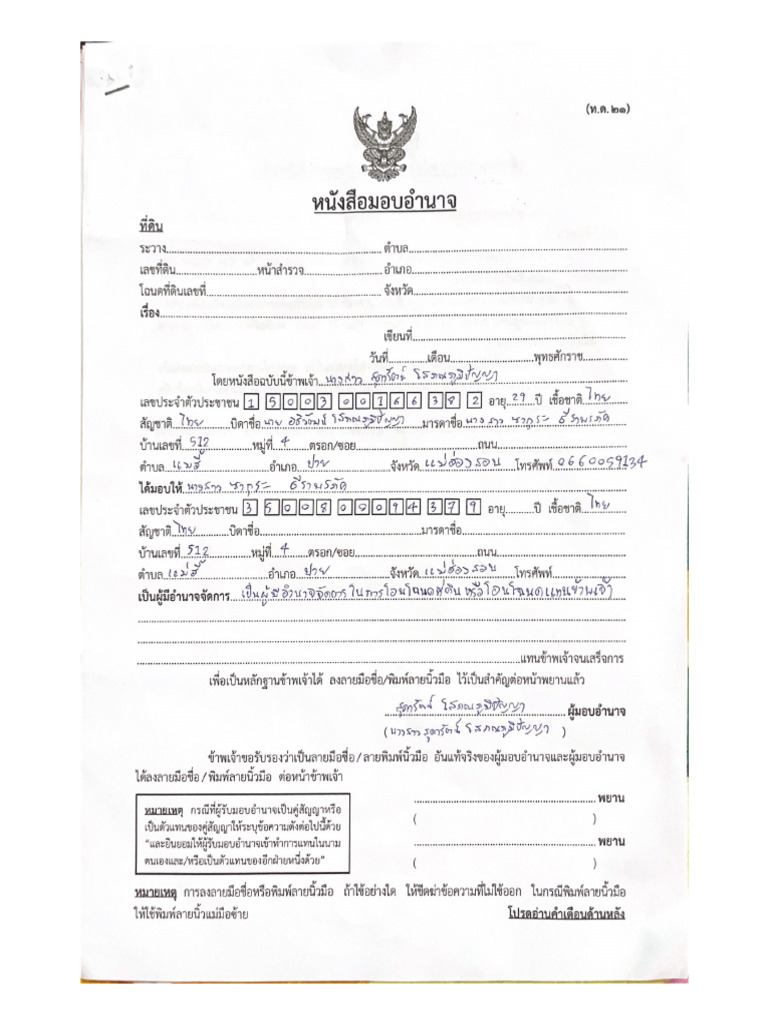 (ท.ด.๒๑)
หนังสือมอบอำนาจ
ที่ดิน
ระวาง................ตำบล................
เลขที่ดิน................หน้าสำรวจ................อำเภอ................
โฉนดที่ดินเลขที่................จังหวัด................
เรื่อง................
เขียนที่................
วันที่............เดือน................พุทธศักราช............
โดยหนังสือฉบับนี้ข้าพเจ้า นางสาว สุดารัตน์ โสภณภูมิปัญญา
เลขประจำตัวประชาชน 1 5003 00166 38 2 อายุ 29 ปี เชื้อชาติ ไทย
สัญชาติ ไทย บิดาชื่อ นาย อธิวัฒน์ โสภณภูมิปัญญา มารดาชื่อ นางสาว
บ้านเลขที่ 512 หมู่ที่ 4 ตรอก/ซอย................ถนน................
ตำบล แม่ฮี้ อำเภอ ปาย จังหวัด แม่ฮ่องสอน โทรศัพท์ 0660059134
ได้มอบให้ นางสาว
เลขประจำตัวประชาชน 3 5008 00094 37 9 อายุ........ปี เชื้อชาติ ไทย
สัญชาติ ไทย บิดาชื่อ................มารดาชื่อ................
บ้านเลขที่ 512 หมู่ที่ 4 ตรอก/ซอย................ถนน................
ตำบล แม่ฮี้ อำเภอ ปาย จังหวัด แม่ฮ่องสอน โทรศัพท์................
เป็นผู้มีอำนาจจัดการ เป็นผู้มีอำนาจจัดการ ในการโอนโฉนดที่ดิน หรือโอนโฉนดแทนข้าพเจ้า
................แทนข้าพเจ้าจนเสร็จการ
เพื่อเป็นหลักฐานข้าพเจ้าได้ ลงลายมือชื่อ/พิมพ์ลายนิ้วมือ ไว้เป็นสำคัญต่อหน้าพยานแล้ว
สุดารัตน์ โสภณภูมิปัญญา ผู้มอบอำนาจ
(นางสาว สุดารัตน์ โสภณภูมิปัญญา)
ข้าพเจ้าขอรับรองว่าเป็นลายมือชื่อ/ลายพิมพ์นิ้วมือ อันแท้จริงของผู้มอบอำนาจและผู้มอบอำนาจ
ได้ลงลายมือชื่อ/พิมพ์ลายนิ้วมือ ต่อหน้าข้าพเจ้า
................พยาน
( )
................พยาน
( )
หมายเหตุ กรณีที่ผู้รับมอบอำนาจเป็นคู่สัญญาหรือ
เป็นตัวแทนของคู่สัญญาให้ระบุข้อความดังต่อไปนี้ด้วย
"และยินยอมให้ผู้รับมอบอำนาจเข้าทำการแทนในนาม
ตนเองและ/หรือเป็นตัวแทนของอีกฝ่ายหนึ่งด้วย"
หมายเหตุ การลงลายมือชื่อหรือพิมพ์ลายนิ้วมือ ถ้าใช้อย่างใด ให้ขีดฆ่าข้อความที่ไม่ใช้ออก ในกรณีพิมพ์ลายนิ้วมือ
ให้ใช้พิมพ์ลายนิ้วแม่มือซ้าย โปรดอ่านคำเตือนด้านหลัง